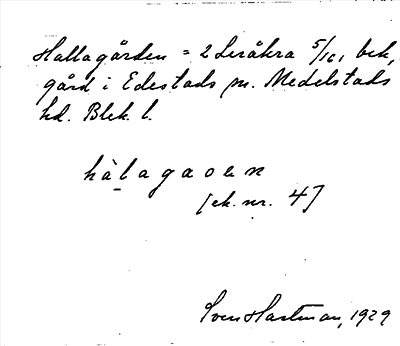 Hallagården = 2 Leråkra 5/16, bek,
gård i Edestads sn. Medelstads
hd. Blek. l.
hàlagaoen
[ek. nr. 4]
Sven Hartman, 1929